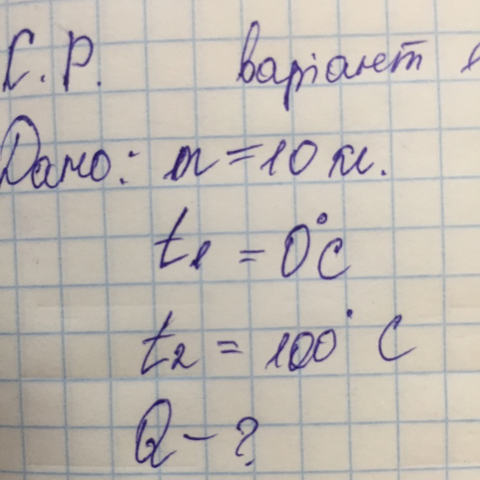 С.Р. варіант
Дано: m = 10 кг.
t₁ = 0°C
t₂ = 100°C
Q - ?